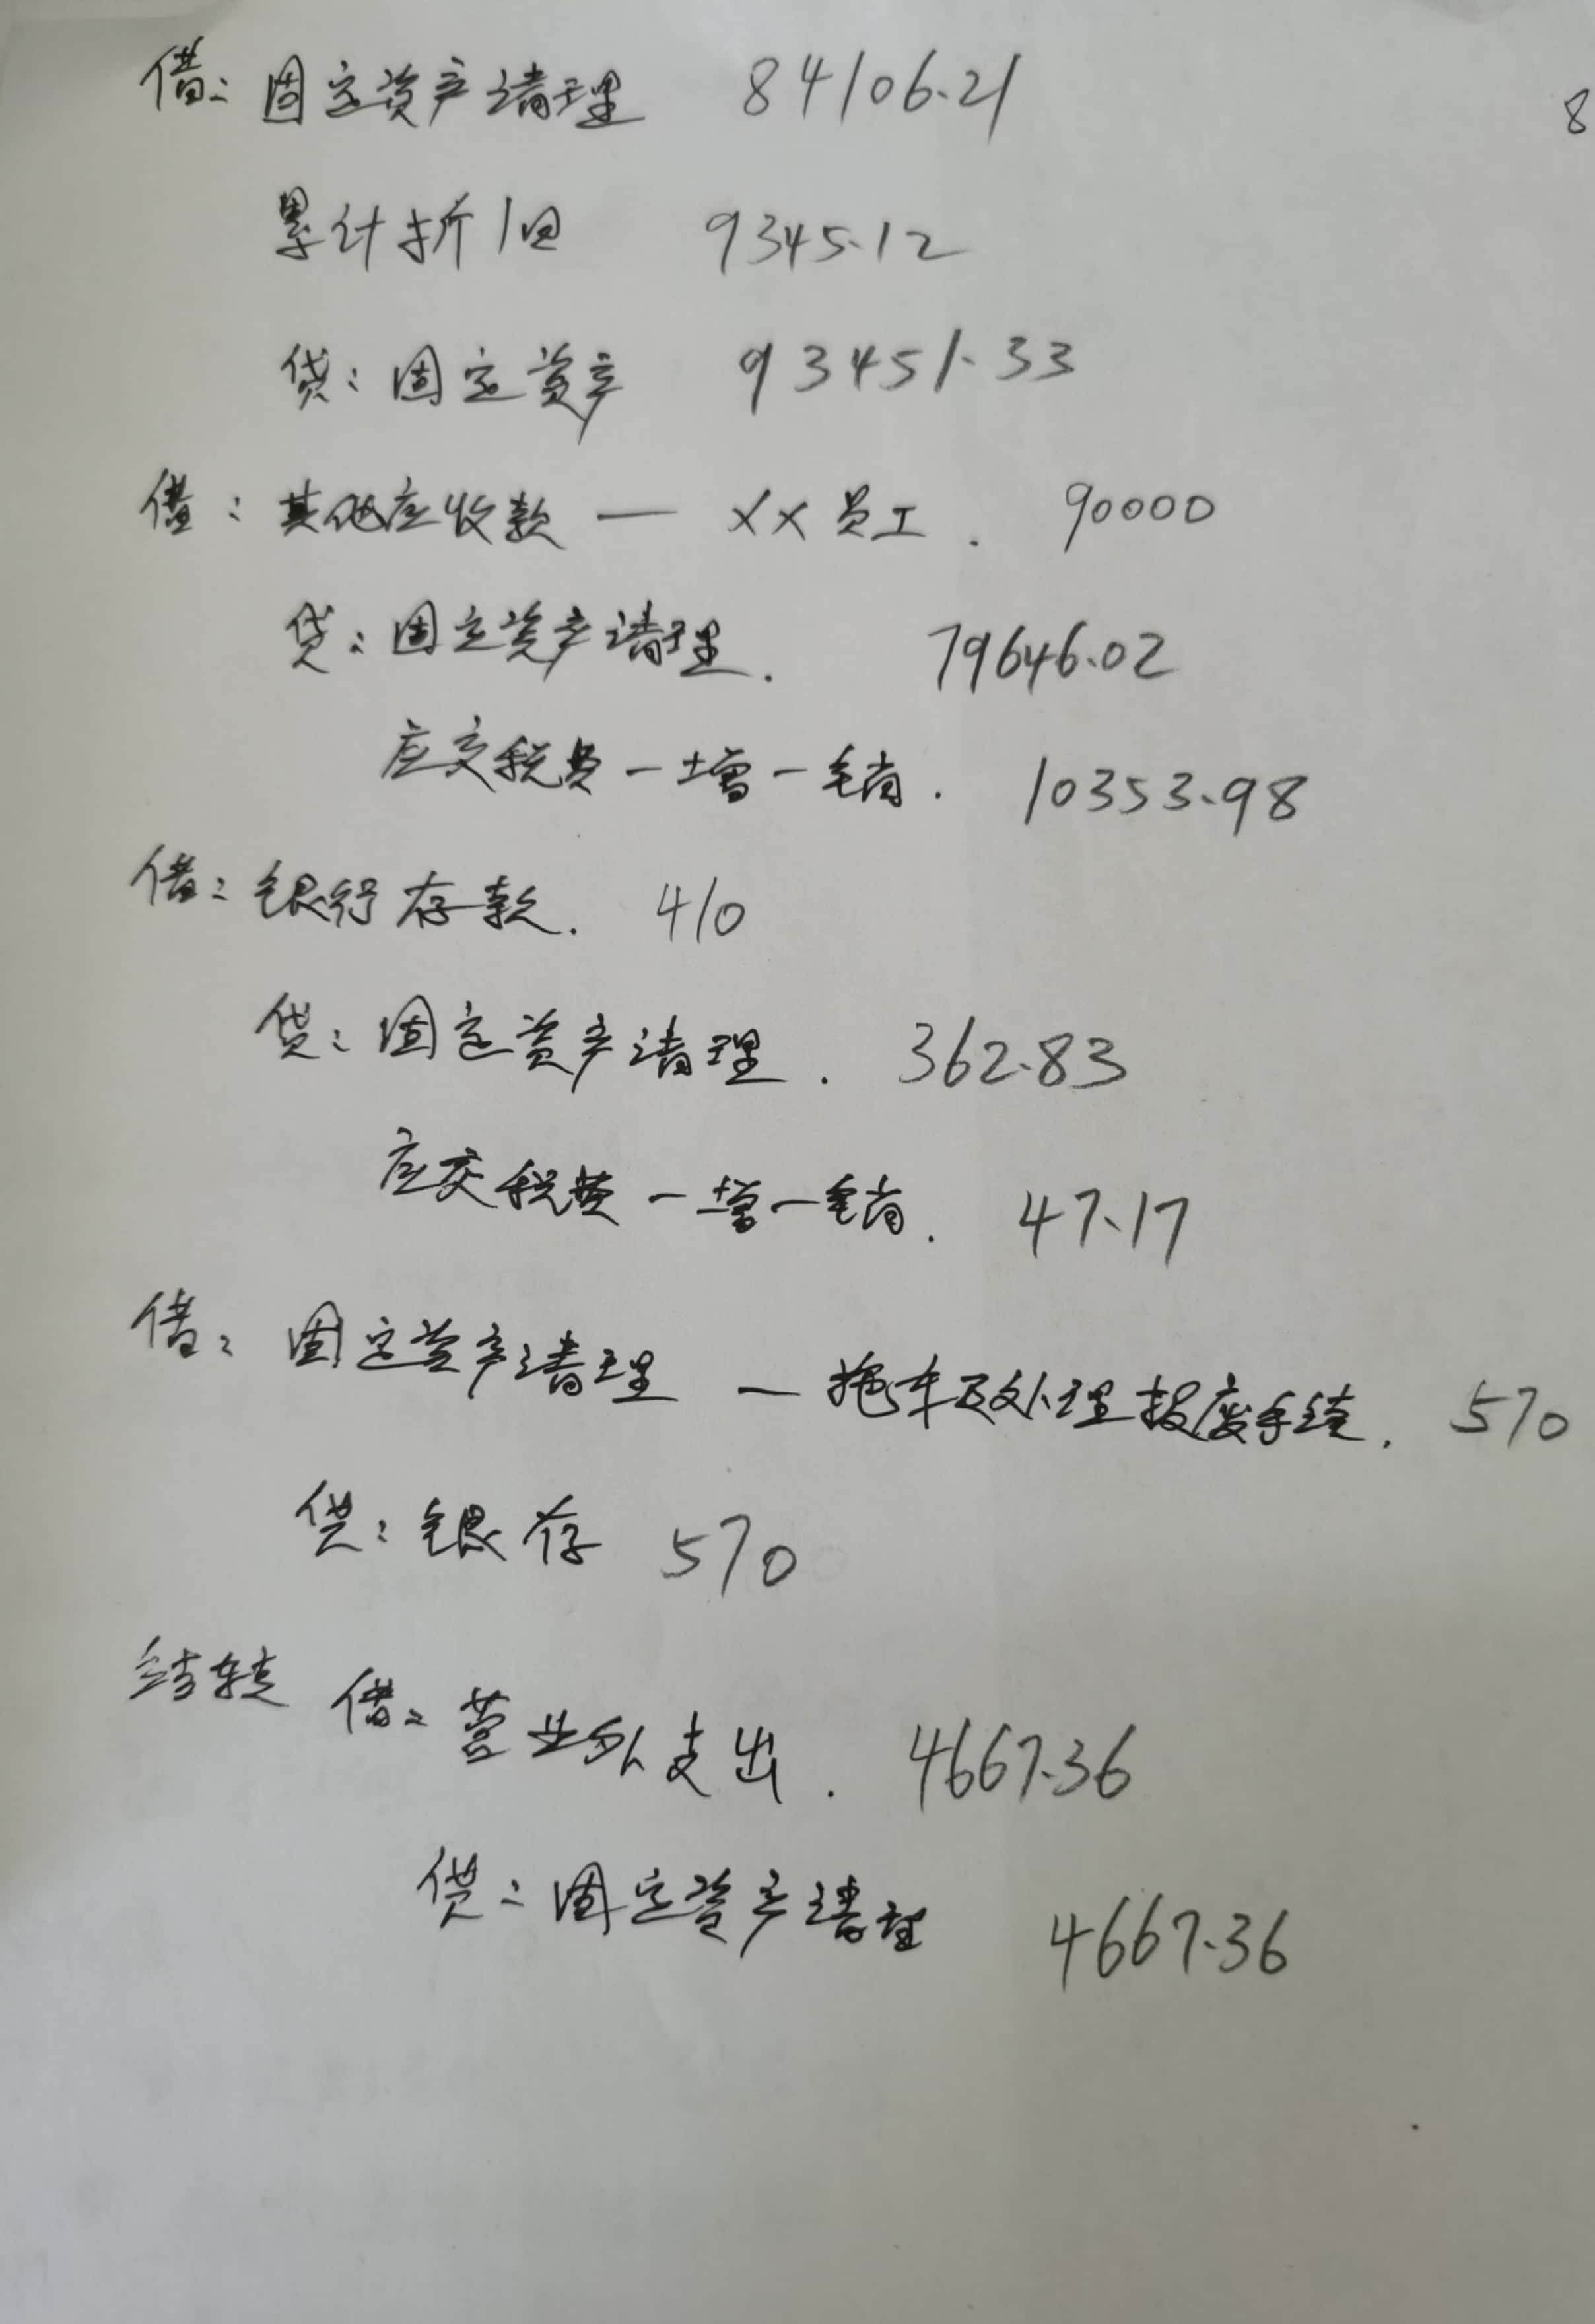 借：固定资产清理 84106.21
8
累计折旧 9345.12
贷：固定资产 93451.33
借：其他应收款 — ××员工. 90000
贷：固定资产清理. 79646.02
应交税费-增-销. 10353.98
借：银行存款. 410
贷：固定资产清理. 362.83
应交税费-增-销. 47.17
借：固定资产清理 — 拖车及处理报废手续. 570
贷：银存 570
结转 借：营业外支出. 4667.36
贷：固定资产清理 4667.36